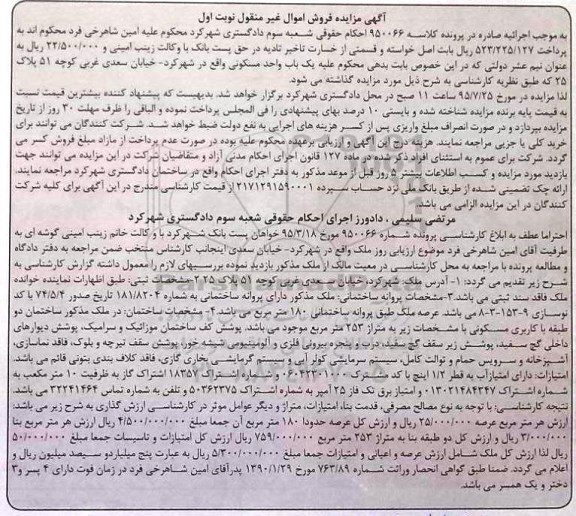 آگهی مزایده فروش اموال غیر منقول نوبت اول
به موجب اجرائیه صادره در پرونده کلاسه ۹۵۰۰۶۶ احکام حقوقی شعبه سوم دادگستری شهرکرد محکوم علیه امین شاهرخی فرد محکوم اند به
پرداخت ۵۲۳/۲۲۵/۱۲۷ ریال بابت اصل خواسته و قسمتی از خسارت تاخیر تادیه در حق پست بانک با وکالت زینب امینی و ۲۲/۵۰۰/۰۰۰ ریال به
عنوان نیم عشر دولتی که در این خصوص بابت بدهی محکوم علیه یک باب واحد مسکونی واقع در شهرکرد- خیابان سعدی غربی کوچه ۵۱ پلاک
۲۵ که طبق نظریه کارشناسی به شرح ذیل مورد مزایده گذاشته می شود.
لذا مزایده در مورخ ۹۵/۷/۲۵ ساعت ۱۱ صبح در محل دادگستری شهرکرد برگزار خواهد شد. بدیهیست که پیشنهاد کننده بیشترین قیمت نسبت
به قیمت پایه برنده مزایده شناخته شده و بایستی ۱۰ درصد بهای پیشنهادی را فی المجلس پرداخت نموده و الباقی را ظرف مهلت ۳۰ روز از تاریخ
مزایده بپردازد و در صورت انصراف مبلغ واریزی پس از کسر هزینه های اجرایی به نفع دولت ضبط خواهد شد. شرکت کنندگان می توانند برای
خرید کلی یا جزیی مراجعه نمایند. هزینه درج این آگهی و ارزیابی برعهده محکوم علیه بوده در صورت عدم پرداخت از مازاد مبلغ فروش کسر می
گردد. شرکت برای عموم به استثنای افراد ذکر شده در ماده ۱۲۷ قانون اجرای احکام مدنی آزاد و متقاضیان شرکت در این مزایده می توانند جهت
بازدید مورد مزایده و کسب اطلاعات بیشتر ۵ روز قبل از موعد مذکور به دفتر اجرای احکام واقع در ساختمان دادگستری شهرکرد مراجعه نمایند.
ارائه چک تضمینی شده از طریق بانک ملی نزد حساب سپرده ۲۱۷۱۲۹۱۵۹۰۰۰۱ از قیمت کارشناسی مندرج در این آگهی برای کلیه شرکت
کنندگان در این مزایده الزامی می باشد.
مرتضی سلیمی ، دادورز اجرای احکام حقوقی شعبه سوم دادگستری شهرکرد
احتراما عطف به ابلاغ کارشناسی پرونده شماره ۹۵۰۰۶۶ مورخ ۹۵/۳/۱۸ خواهان پست بانک شهرکرد با وکالت خانم زینب امینی گوشه ای به
طرفیت آقای امین شاهرخی فرد موضوع ارزیابی روز ملک واقع در شهرکرد- خیابان سعدی اینجانب کارشناس منتخب ضمن مراجعه به دفتر دادگاه
و مطالعه پرونده با مراجعه به محل کارشناسی در معیت مالک از ملک مذکور بازدید نموده بررسیهای لازم را معمول داشته گزارش کارشناسی به
شرح زیر تقدیم می گردد: ۱- آدرس ملک: شهرکرد، خیابان سعدی غربی کوچه ۵۱ پلاک ۲۵ ۲-مشخصات ثبتی: طبق اظهارات نماینده خوانده
ملک فاقد سند ثبتی می باشد.۳-مشخصات پروانه ساختمانی: ملک مذکور دارای پروانه ساختمانی به شماره ۱۸۱/۸۲۰۴ تاریخ صدور ۷۴/۵/۴ کد
نوسازی ۹-۱۵۳-۳-۸ می باشد. عرصه ملک طبق پروانه ساختمانی ۱۸۰ متر مربع می باشد ۴- مشخصات ساختمان: در ملک مذکور ساختمان دو
طبقه با کاربری مسکونی با مشخصات زیر به متراژ ۲۵۳ متر مربع موجود می باشد. پوشش کف ساختمان موزائیک و سرامیک، پوشش دیوارهای
داخلی گچ سفید، پوشش زیر سقف گچ سفید، درب و پنجره بیرونی فلزی و آلومینیومی شیشه خور، پوشش سقف تیرچه و بلوک، فاقد نماسازی،
آشپزخانه و سرویس حمام و توالت کامل، سیستم سرمایشی کولر آبی و سیستم گرمایشی بخاری گازی، فاقد کلاف بندی بتونی قائم می باشد.
امتیازات: دارای امتیازآب به قطر ۱/۲ اینچ با کد مشترک و شماره اشتراک ۱۸۳۵۷ اشتراک گاز به ظرفیت ۱۰ متر مکعب به
شماره اشتراک ۰۱۳۰۲۱۴۸۴۳۴۷ و امتیاز برق تک فاز ۲۵ آمپر به شماره اشتراک ۵۰۳۶۲۳۷۵ و تلفن به شماره تماس ۳۲۲۴۱۴۶۴ می باشد.
نتیجه کارشناسی: با توجه به نوع مصالح مصرفی، قدمت بنا، امتیازات، متراژ و دیگر عوامل موثر در کارشناسی ارزش گذاری به شرح زیر می باشد:
ارزش هر متر مربع عرصه ۲۵/۰۰۰/۰۰۰ ریال و ارزش کل عرصه حدودا ۱۸۰ متر مربع آن جمعا مبلغ ۴/۵۰۰/۰۰۰/۰۰۰ ریال ارزش هر متر مربع بنا
۳/۰۰۰/۰۰۰ ریال و ارزش کل دو طبقه بنا به متراژ ۲۵۳ متر مربع ۷۵۹/۰۰۰/۰۰۰ ریال ارزش کل امتیازات و تاسیسات جمعا مبلغ ۵۰/۰۰۰/۰۰۰
ریال لذا ارزش کل ملک شامل ارزش عرصه و اعیانی و امتیازات جمعا مبلغ ۵/۳۰۰/۰۰۰/۰۰۰ ریال به عبارت پنج میلیاردو سیصد میلیون ریال و
اعلام می گردد. ضمنا طبق گواهی انحصار وراثت شماره ۷۶۳/۸۹ مورخ ۱۳۹۰/۱/۲۹ پدرآقای امین شاهرخی فرد در زمان فوت دارای ۴ پسر و۳
دختر و یک همسر می باشد.